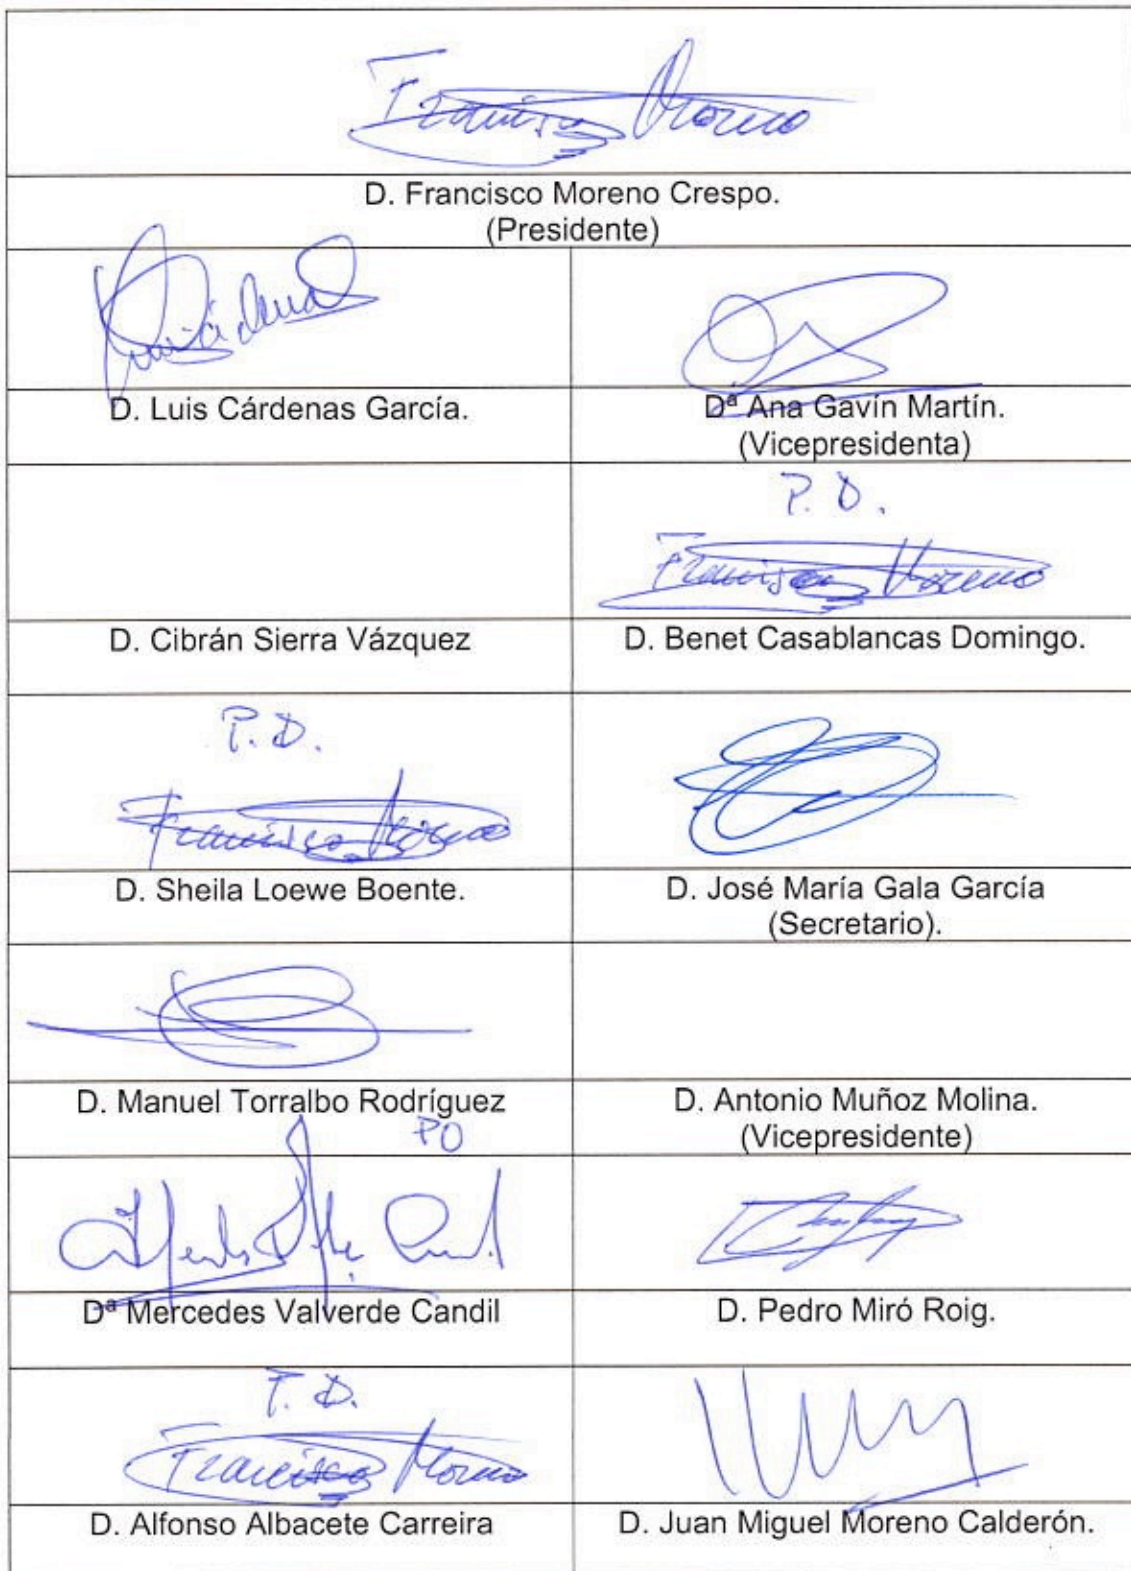 Francisco Moreno
D. Francisco Moreno Crespo.
(Presidente)
D. Luis Cárdenas García.
Dª Ana Gavín Martín.
(Vicepresidenta)
P. D.
Francisco Moreno
D. Cibrán Sierra Vázquez
D. Benet Casablancas Domingo.
P. D.
Francisco Moreno
D. Sheila Loewe Boente.
D. José María Gala García
(Secretario).
D. Manuel Torralbo Rodríguez
D. Antonio Muñoz Molina.
(Vicepresidente)
PO
Dª Mercedes Valverde Candil
D. Pedro Miró Roig.
P. D.
Francisco Moreno
D. Alfonso Albacete Carreira
D. Juan Miguel Moreno Calderón.